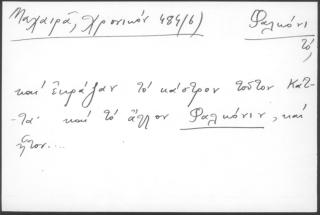 Μαχαιρᾶ, Χρονικόν 484/6)
Φαλκόνι
τό,
καί ἔκραξαν τό κάστρον τοῦτον Κατ-
τα· καί τό ἄλλον Φαλκόνιν, καί
ἦτον...